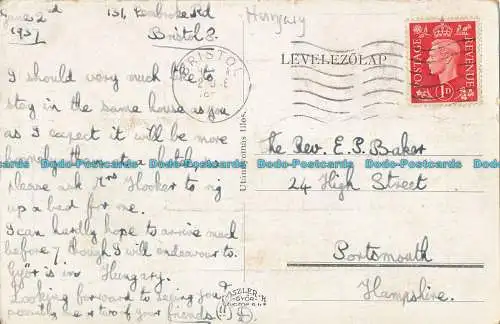 June 2nd
1937
131, Pembroke Rd
Bristol 8
Hungary
I should very much like to
stay in the same house as you
as I expect it will be more
homely
please ask Mrs Hooker to rig
up a bed for me.
I can hardly hope to arrive much
before 7 though I will endeavour to.
Győr is in Hungary.
Looking forward to seeing you &
possibly one or two of your friends
BRISTOL
LEVELEZŐLAP
POSTAGE
REVENUE
1D
The Rev. E. P. Baker
24 High Street
Portsmouth
Hampshire.
Dodo-Postcards Dodo-Postcards Dodo-Postcards Dodo-Postcards Dodo-Postcards
GYŐR